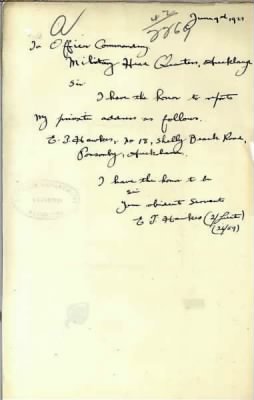 June 9th 1921
To Officer Commanding
Military Head Quarters, Auckland
Sir
I have the honor to report
my private address as follows.
E. J. Hawkes, No 18, Shelly Beach Road,
Ponsonby, Auckland.
I have the honor to be
Sir
Your obedient Servant
E J Hawkes (2/Lieut)